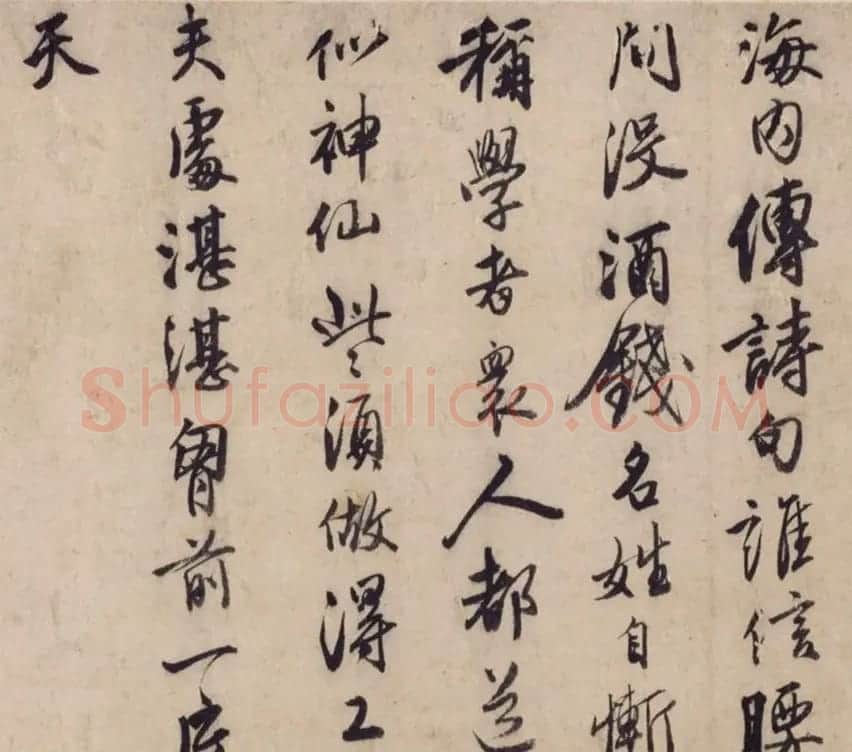 海内傳詩句誰信腰
間沒酒錢名姓自慚
稱學者衆人都道
似神仙些須做得工
夫處湛湛胷前一片
天
Shufaziliao.COM